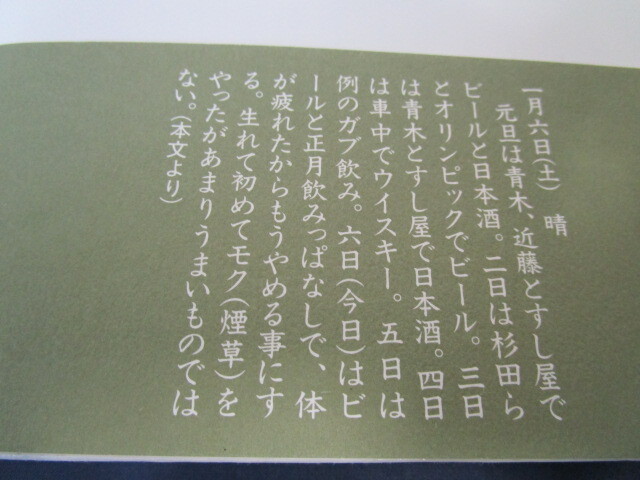 一月六日(土)　晴
　元旦は青木、近藤とすし屋で
ビールと日本酒。二日は杉田ら
とオリンピックでビール。三日
は青木とすし屋で日本酒。四日
は車中でウイスキー。五日は
例のガブ飲み。六日(今日)はビ
ールと正月飲みっぱなしで、体
が疲れたからもうやめる事にす
る。生れて初めてモク(煙草)を
やったがあまりうまいものでは
ない。(本文より)